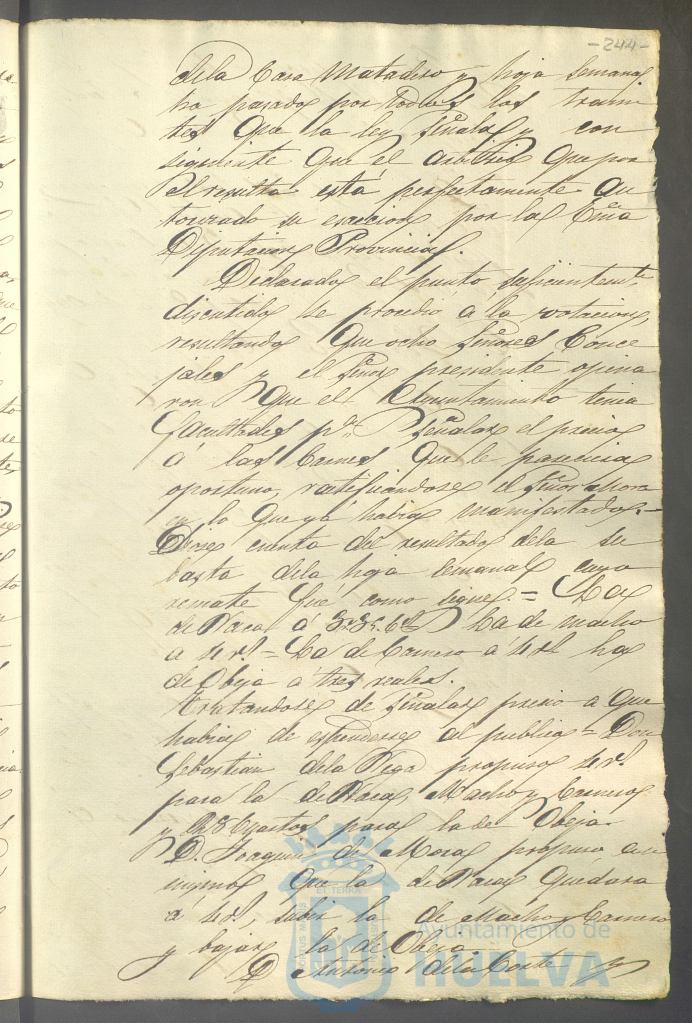 -244-
dela Casa Matadero y hoja semanal
ha pasado por todos los trami
tes que la ley señala y con
siguiente que el arbitrio que por
el resulta está perfectamente au
torizado su esaccion por la Exma
Diputacion Provincial.
Declarado el punto suficientemte
discutido se procedió a la votacion,
resultando que ocho Señores Conce
jales y el Señor presidente opina
ron que el Ayuntamiento tenia
facultades pa señalar el precio
á las Carnes que le pareciera
oportuno, ratificandose el Señor
en lo que ya habia manifestado.=
Diose cuenta del resultado dela su
basta dela hoja semanal cuyo
remate fue como sigue.= La
de Vaca á La de macho
a 4 rs.= La de Carnero a 4 rs
de Obeja a tres reales.
Tratandose de señalar precio a que
habia de espenderse al publico= Don
Sebastian dela Vega propuso 4 rs.
para la de Vaca, Macho y Carnero
y 28 Cuartos para la de Obeja
D. Joaquin de Mora propuso
que la de Vaca quedara
á 4 rs., subir la de Macho y Carnero
y bajar la de Obeja
D. Antonio dela Corte y
PORTUS MARIS ET TERRÆ
Ayuntamiento de
HUELVA